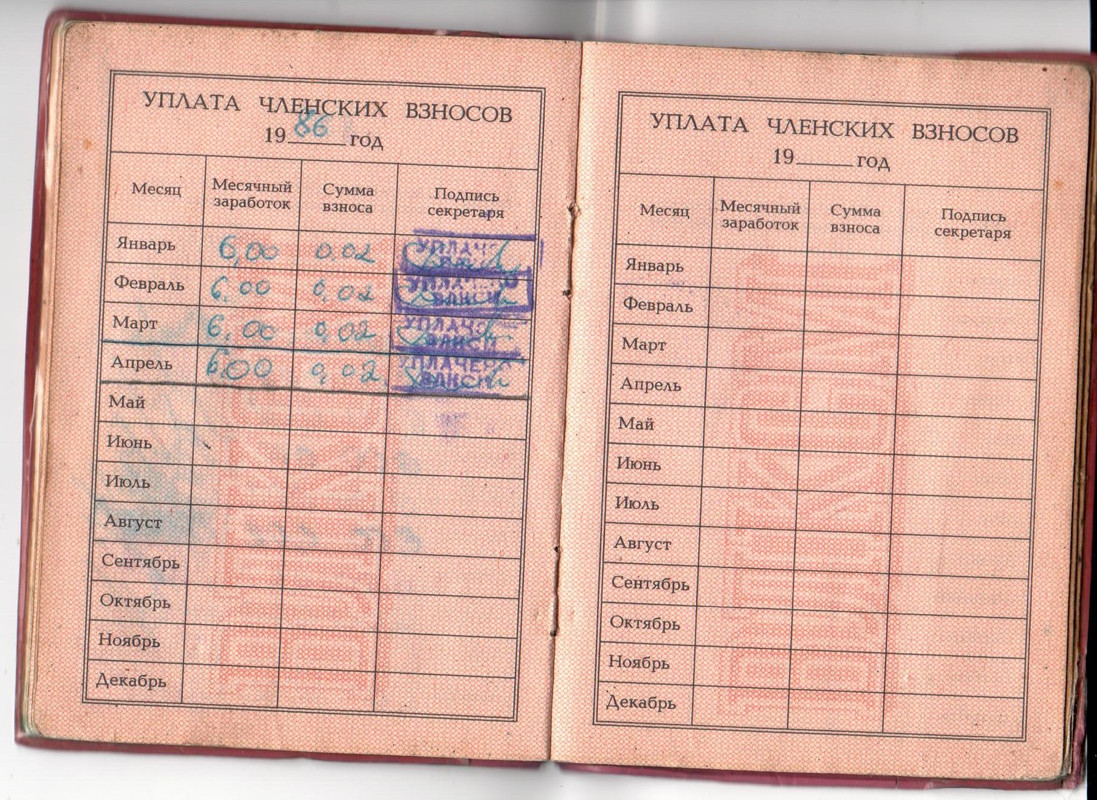 УПЛАТА ЧЛЕНСКИХ ВЗНОСОВ
1986 год
Месяц Месячный заработок Сумма взноса Подпись секретаря
Январь 6,00 0,02 УПЛАЧЕНО ВЛКСМ
Февраль 6,00 0,02 УПЛАЧЕНО ВЛКСМ
Март 6,00 0,02 УПЛАЧЕНО ВЛКСМ
Апрель 6,00 0,02 УПЛАЧЕНО ВЛКСМ
Май
Июнь
Июль
Август
Сентябрь
Октябрь
Ноябрь
Декабрь
УПЛАТА ЧЛЕНСКИХ ВЗНОСОВ
19 год
Месяц Месячный заработок Сумма взноса Подпись секретаря
Январь
Февраль
Март
Апрель
Май
Июнь
Июль
Август
Сентябрь
Октябрь
Ноябрь
Декабрь